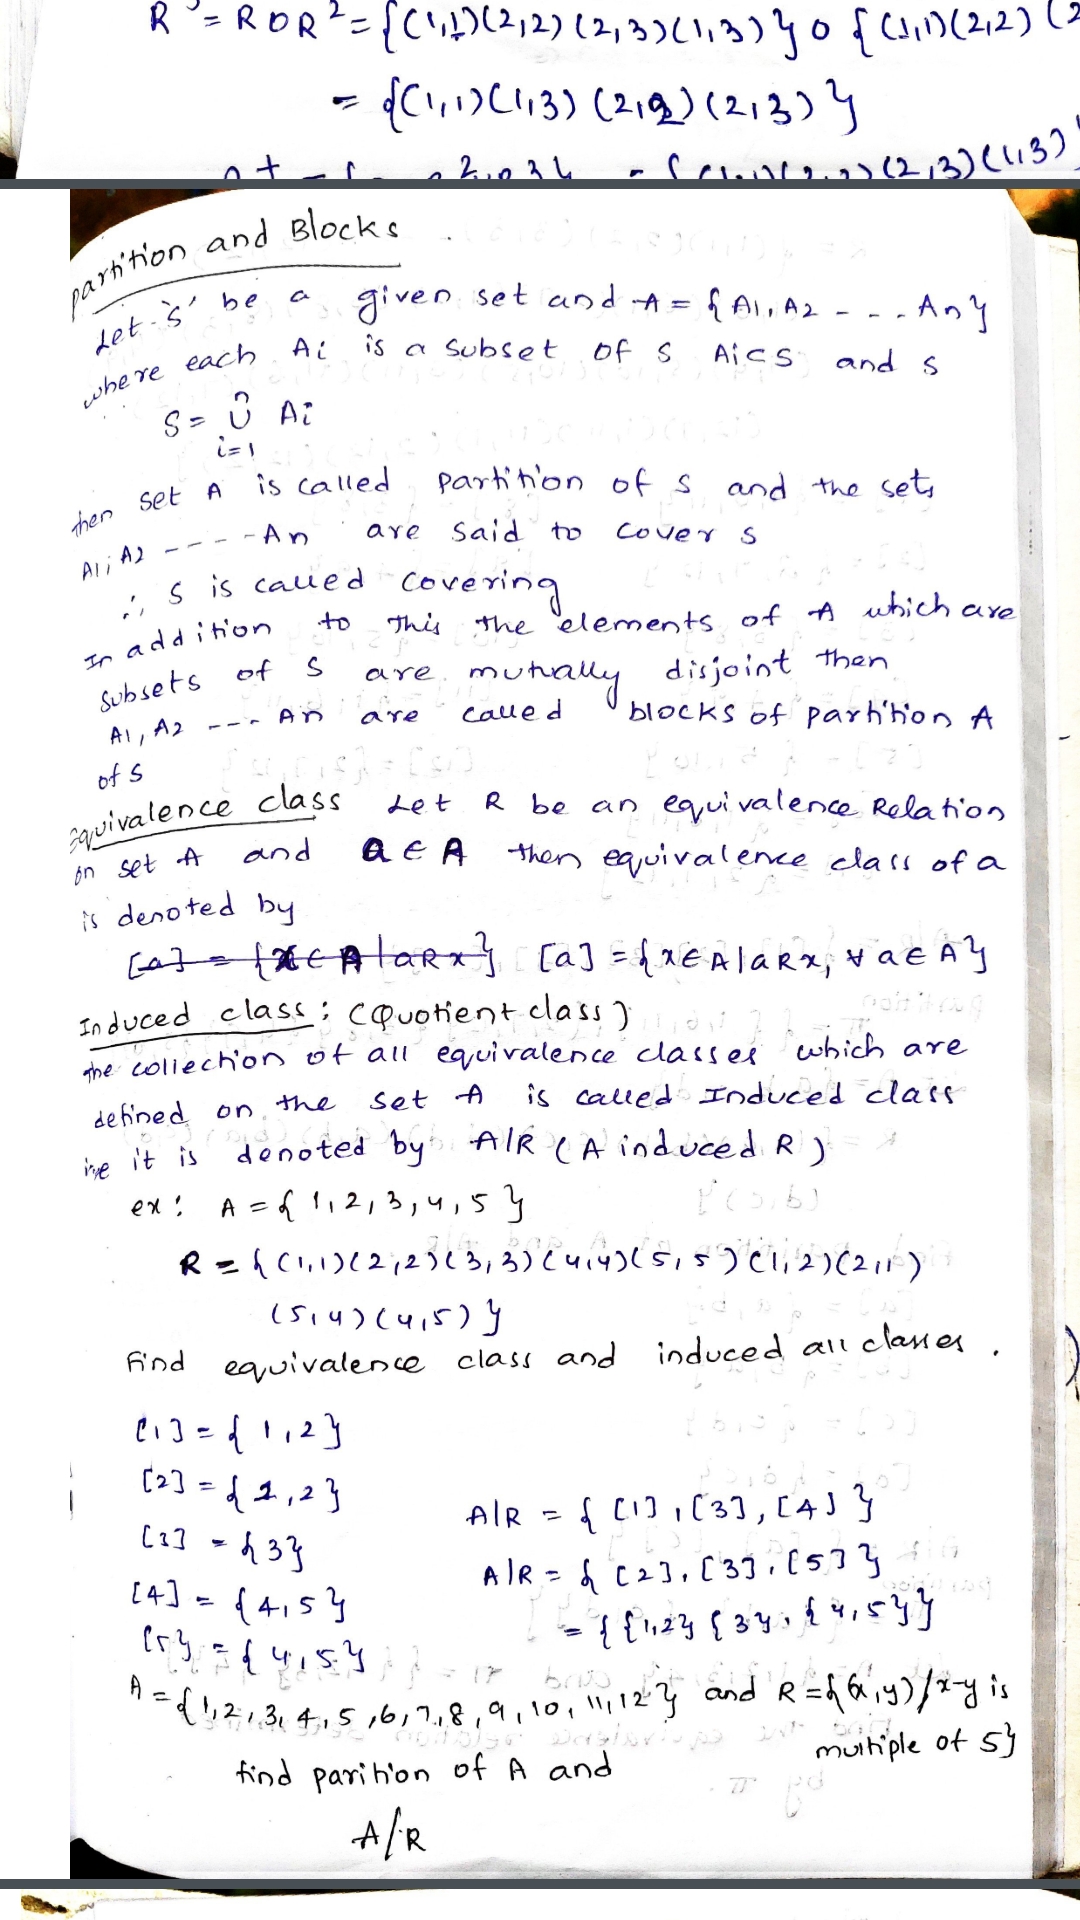 R³ = R O R² = {(1,1)(2,2)(2,3)(1,3)} o {(1,1)(2,2)(2
= {(1,1)(1,3)(2,2)(2,3)}
(2,3)(1,3)
partition and Blocks
Let 's' be a given set and A = { A1, A2 - - - An}
where each Ai is a subset of s Ai⊂S and s
S = n∪i=1 Ai
then set A is called partition of s and the sets
A1, A2 ---- An are said to cover s
∴ S is called covering
In addition to this the elements of A which are
subsets of S are mutually disjoint then
A1, A2 --- An are called blocks of partition A
of S
Equivalence class Let R be an equivalence Relation
on set A and a ∈ A then equivalence class of a
is denoted by
[a] = {x∈A|aRx} [a] = {x∈A|aRx, ∀ a∈A}
Induced class: (Quotient class)
The collection of all equivalence classes which are
defined on the set A is called Induced class
it is denoted by A/R (A induced R)
ex: A = {1,2,3,4,5}
R = {(1,1)(2,2)(3,3)(4,4)(5,5)(1,2)(2,1)
(5,4)(4,5)}
Find equivalence class and induced all classes.
[1] = {1,2}
[2] = {1,2}
[3] = {3}
[4] = {4,5}
[5} = {4,5}
A|R = {[1],[3],[4]}
A|R = {[2],[3],[5]}
= {{1,2}{3},{4,5}}
A = {1,2,3,4,5,6,7,8,9,10,11,12} and R = {(x,y)/x-y is
multiple of 5}
find parition of A and
A/R